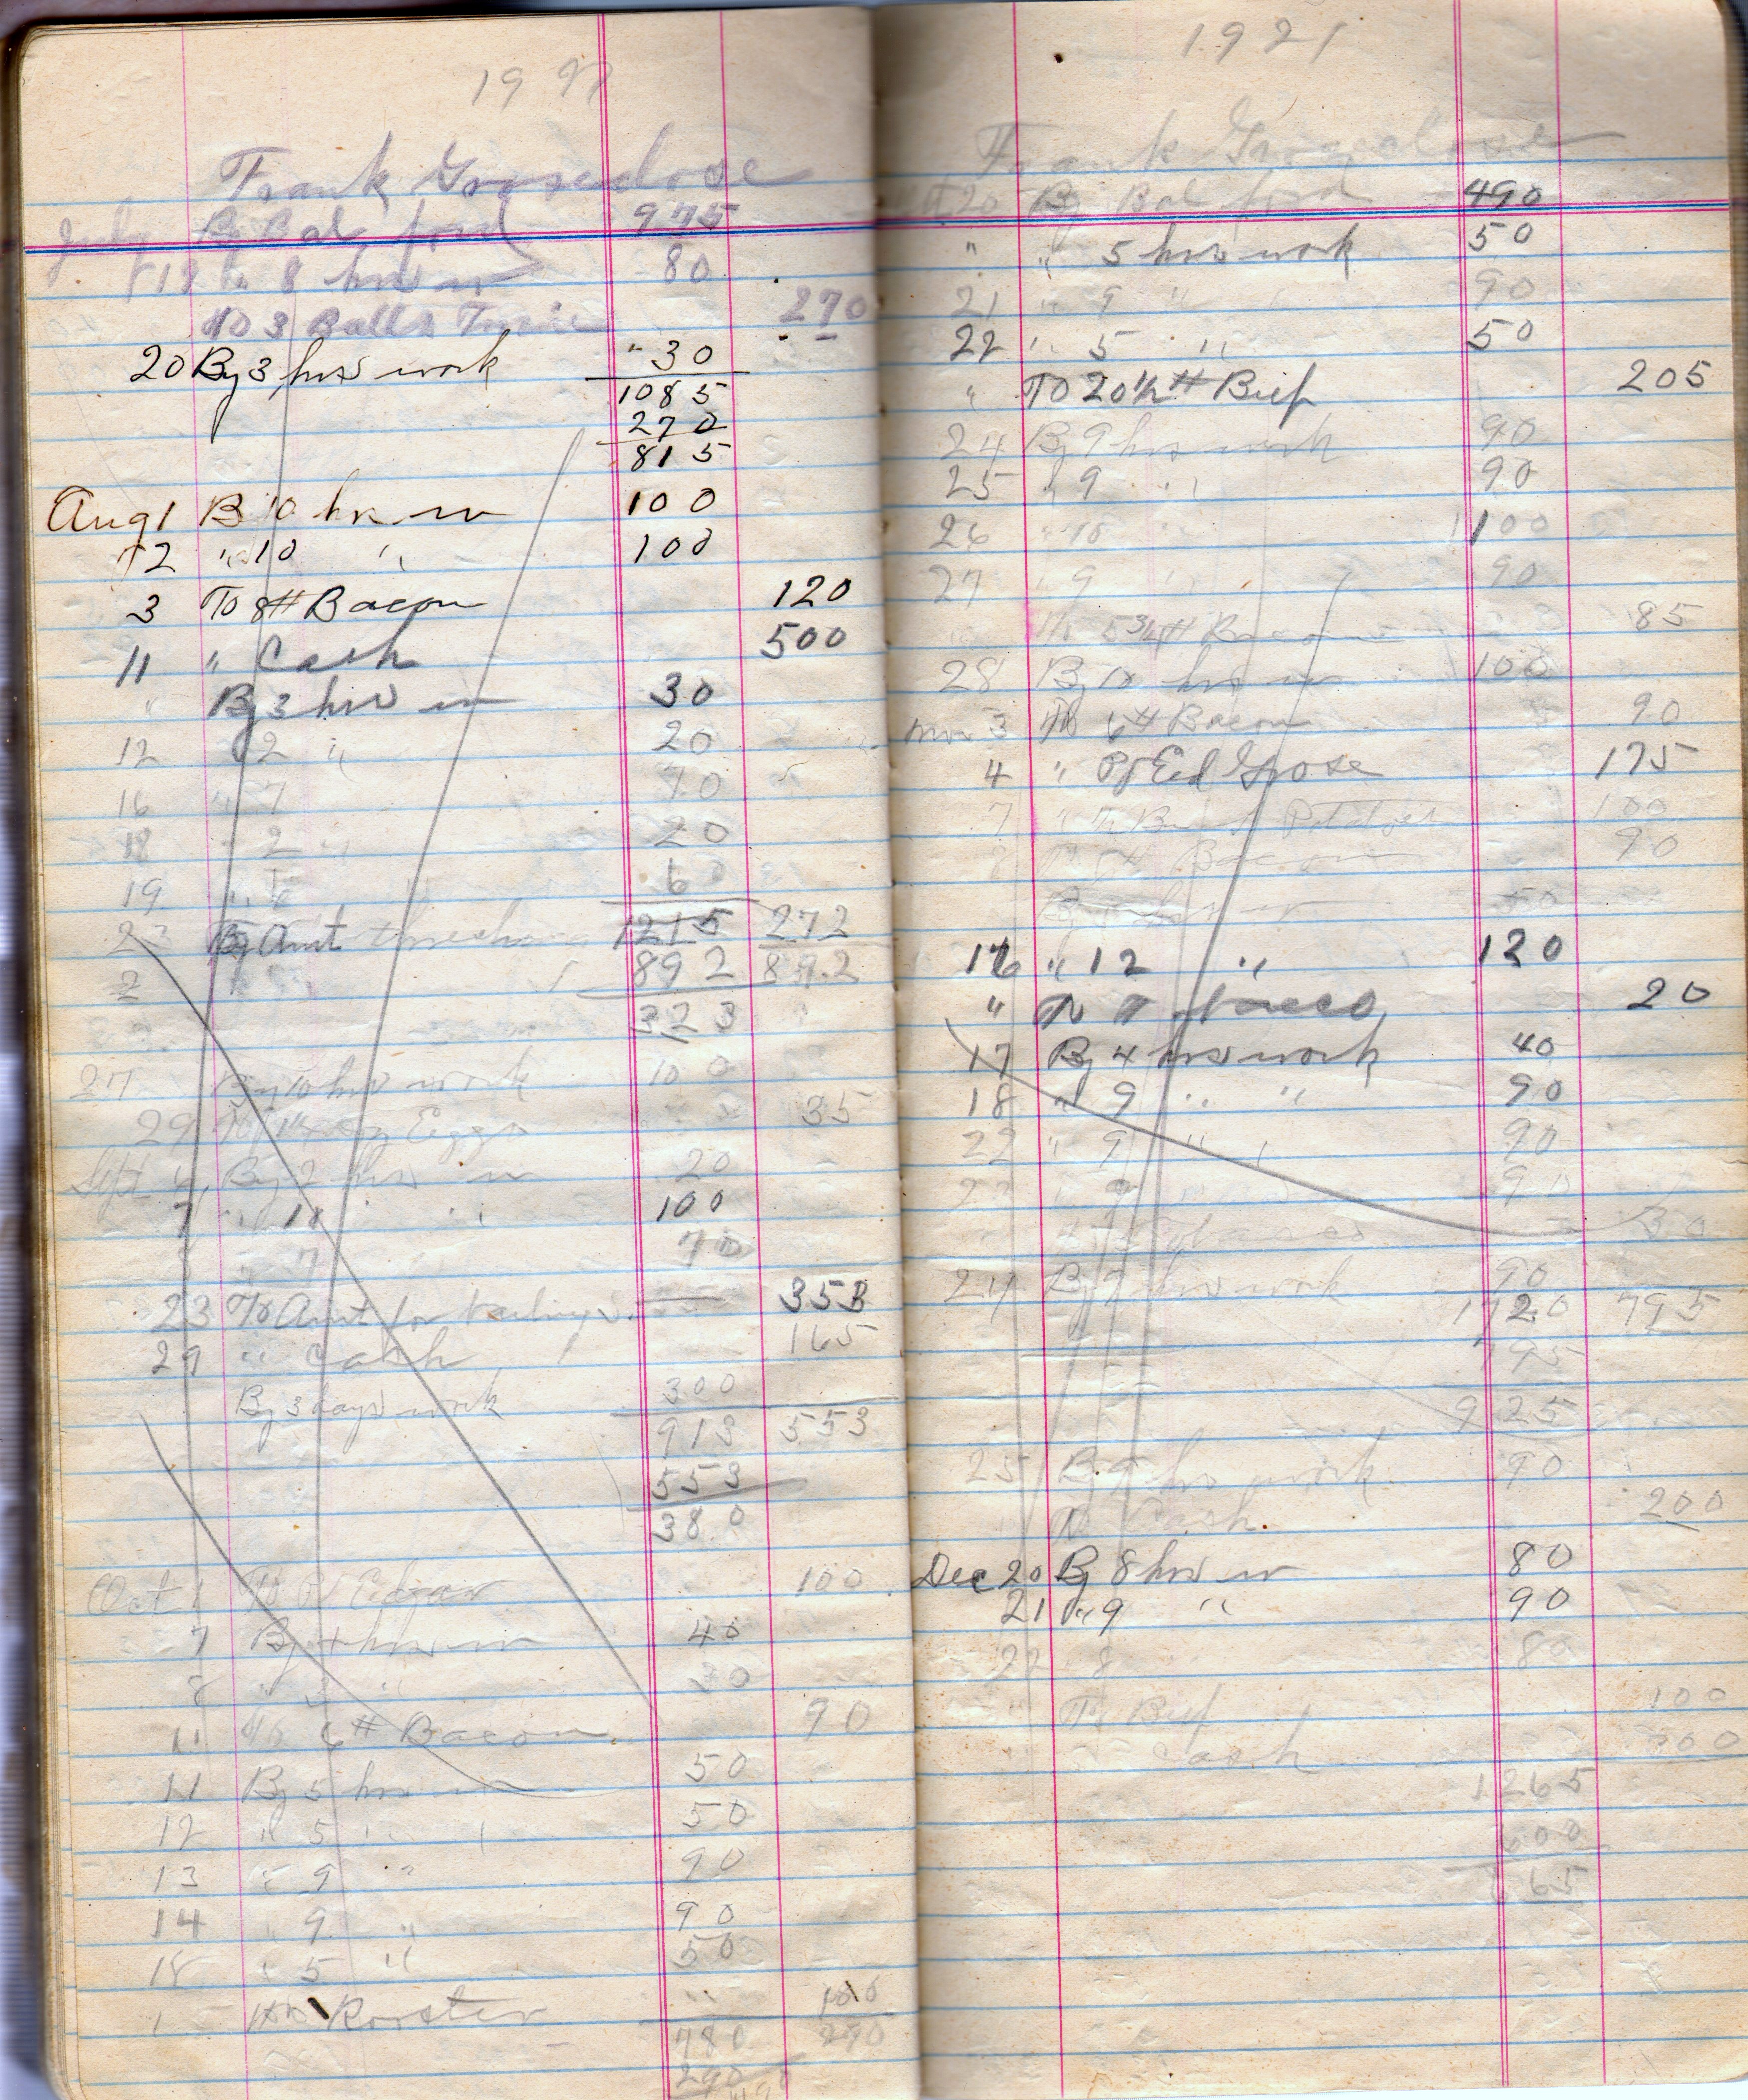 19
Frank Groseclose
July By Bal ford 975
18 " 8 hrs w 80
To 3 Balls Twine 270
20 By 3 hrs work 30
1085
270
815
Aug 1 B 10 hrs w 100
2 " 10 " 100
3 To 8# Bacon 120
11 " Cash 500
" By 3 hrs w 30
12 2 " 20
16 " 7 70
18 2 " 20
19 " 6
23 By Amt 1215 272
2 892 892
323
27 By 10 hrs work 100
29 Eggs 35
Sept 6 By 2 hrs w 20
7 " 10 " 100
7 70
23 To Amt for 353
29 " Cash 165
By 3 days work 300
913 553
553
380
Oct 1 To Pd Edgar 100
7 By 4 hrs w 40
8 " " 30
11 To 6# Bacon 90
11 By 5 hrs w 50
12 " 5 " 50
13 " 9 " 90
14 " 9 " 90
18 " 5 " 50
To Rooster 100
780 290
290
1921
Frank Groseclose
20 By Bal ford 490
" " 5 hrs work 50
21 " 9 " 90
22 " 5 " 50
" To 20 1/2# Beef 205
24 By 9 hrs work 90
25 " 9 " 90
26 " 10 " 100
27 " 9 " 90
To 5 3/4# Bacon 85
28 By 10 hrs w 100
Nov 3 To 6# Bacon 90
4 " Pd Ed Grose 175
7 " Potatoes 100
8 To 6# Bacon 90
By hrs w 50
16 " 12 " 120
" To 20
17 By 4 hrs work 40
18 " 9 " " 90
22 " 9 " " 90
23 " 9 90
30
24 By 9 hrs work 90
1720 795
795
925
25 By 9 hrs work 90
To Cash 200
Dec 20 By 8 hrs w 80
21 " 9 " 90
22 8 80
" To Beef 100
Cash 300
1265
600
665